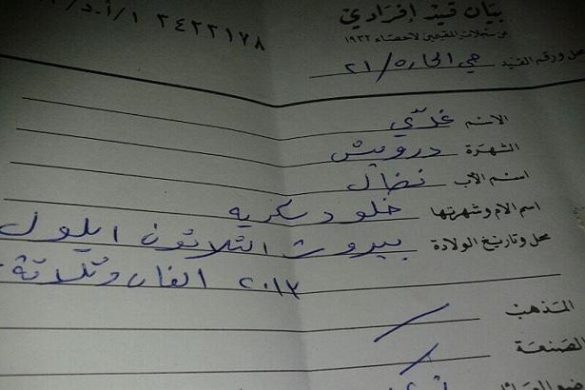 بيان قيد إفرادي
عن سجلات المقيمين لاحصاء ١٩٣٢
٢٤٢٢١٧٨
محل ورقم القيد حي الحاره / ٢١
الاسم عدي
الشهرة درويش
اسم الأب نضال
اسم الام وشهرتها خلود سكريه
محل وتاريخ الولادة بيروت الثلاثون ايلول
٢٠١٣ الفان وثلاثة
المذهب /
الصنعة /